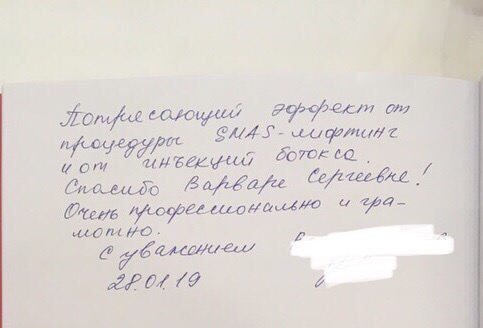 Потрясающий эффект от
процедуры SMAS-лифтинг
и от инъекций ботокса.
Спасибо Варваре Сергеевне!
Очень профессионально и гра-
мотно.
С уважением
28.01.19